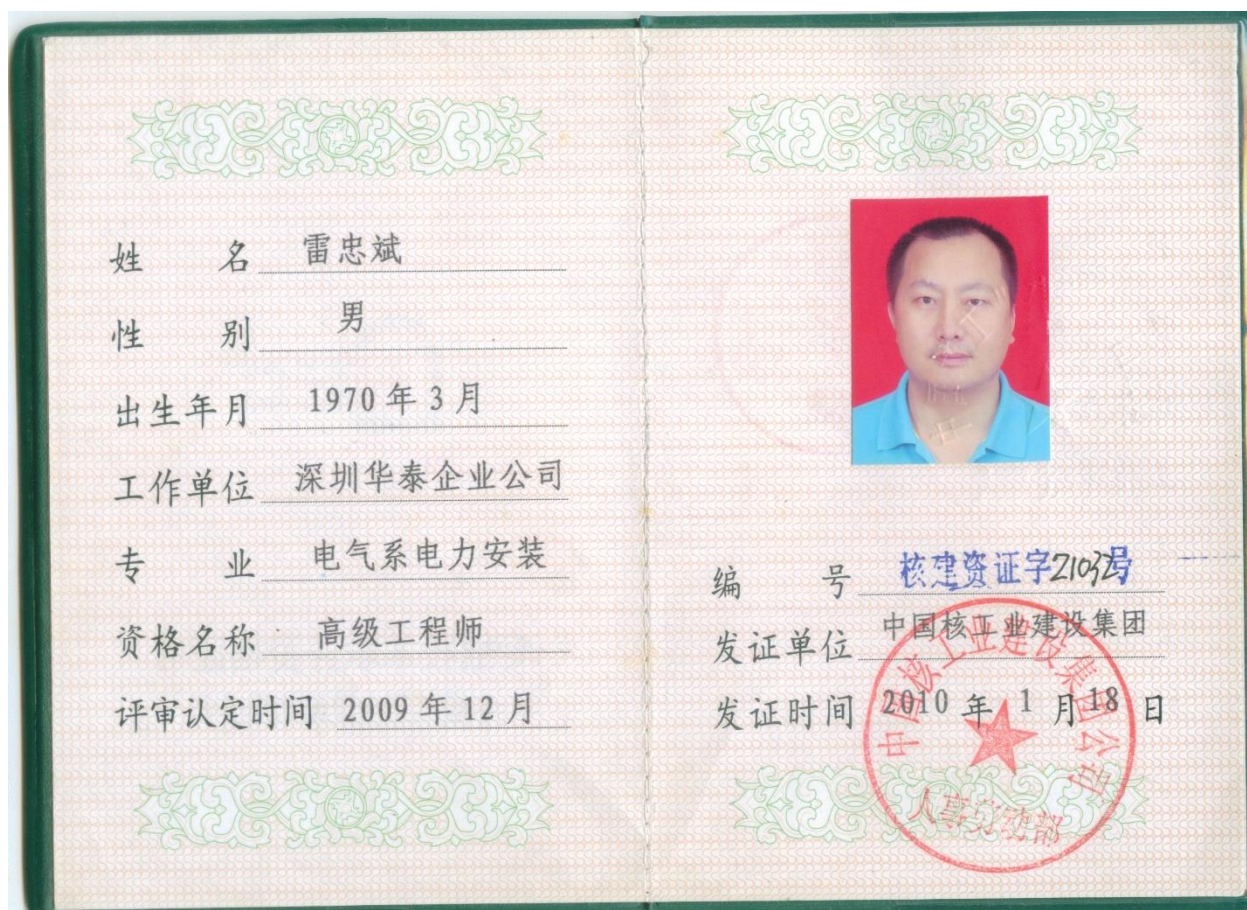 姓 名 雷忠斌
性 别 男
出生年月 1970年3月
工作单位 深圳华泰企业公司
专 业 电气系电力安装
资格名称 高级工程师
评审认定时间 2009年12月
编 号 核建资证字21032号
发证单位 中国核工业建设集团
发证时间 2010年1月18日
中国核工业建设集团公司
人事劳动部